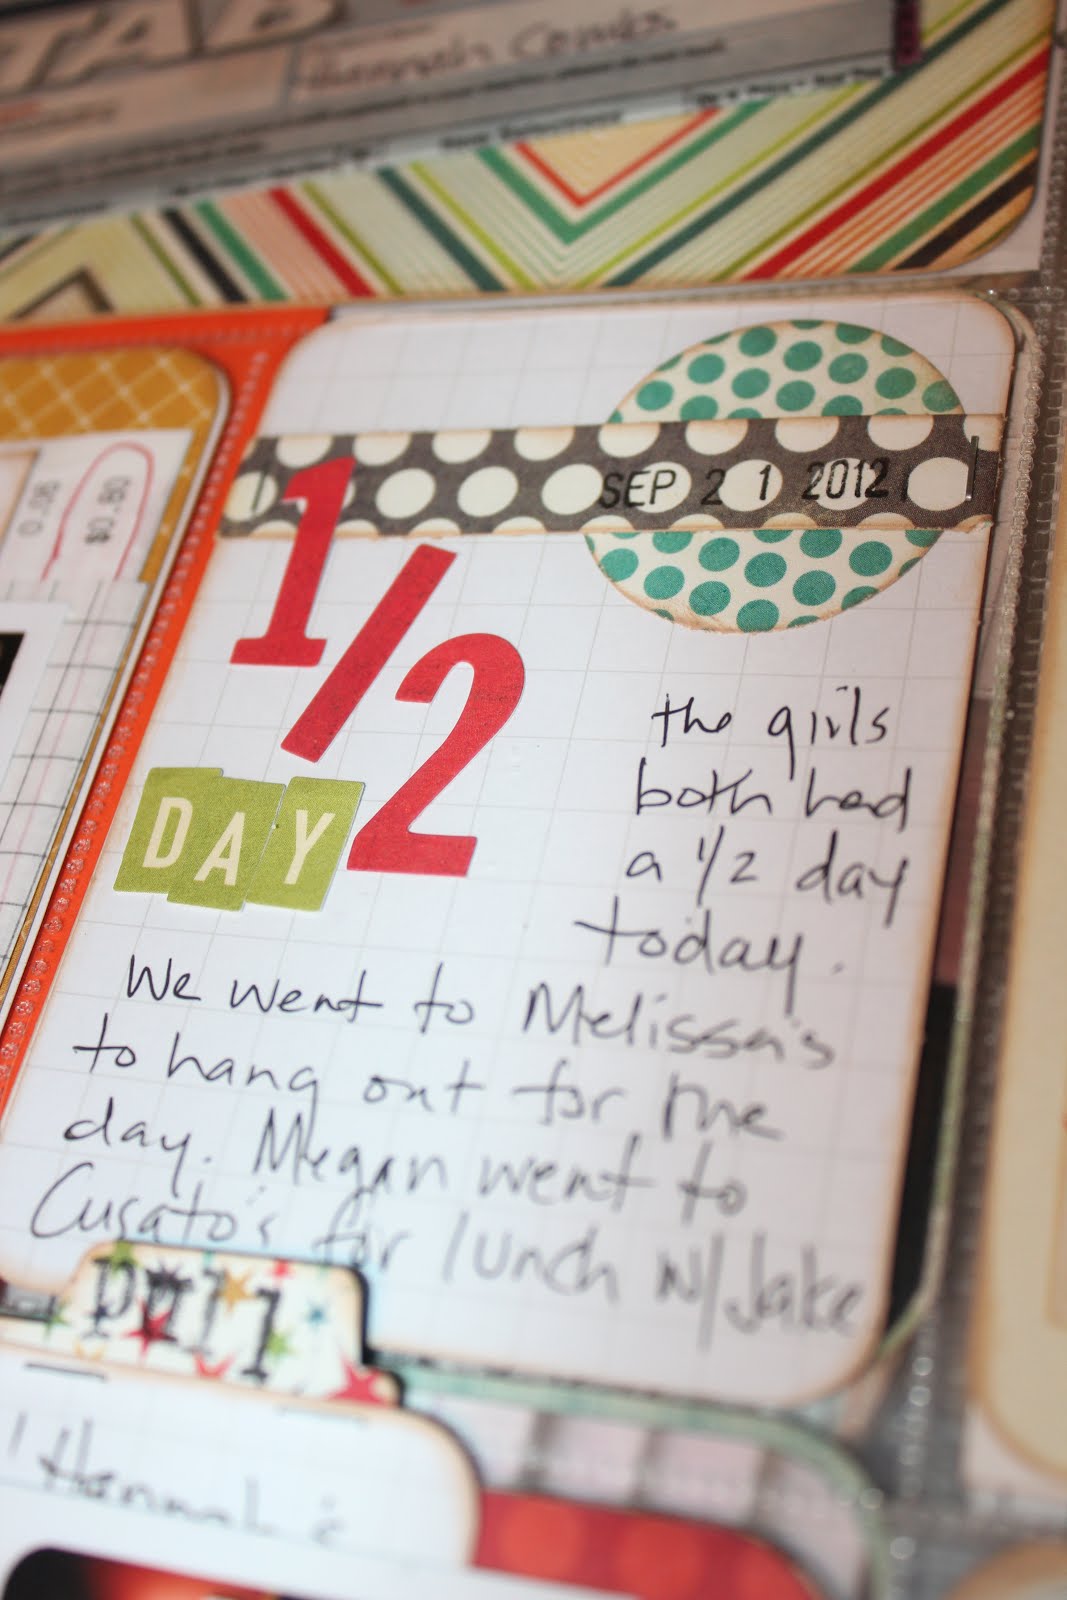 TAB
Hannah Combs
0.95
SEP 21 2012
1/2
DAY
the girls
both had
a 1/2 day
today.
We went to Melissa's
to hang out for the
day. Megan went to
Cusato's for lunch w/ Jake
pull
Hannah &